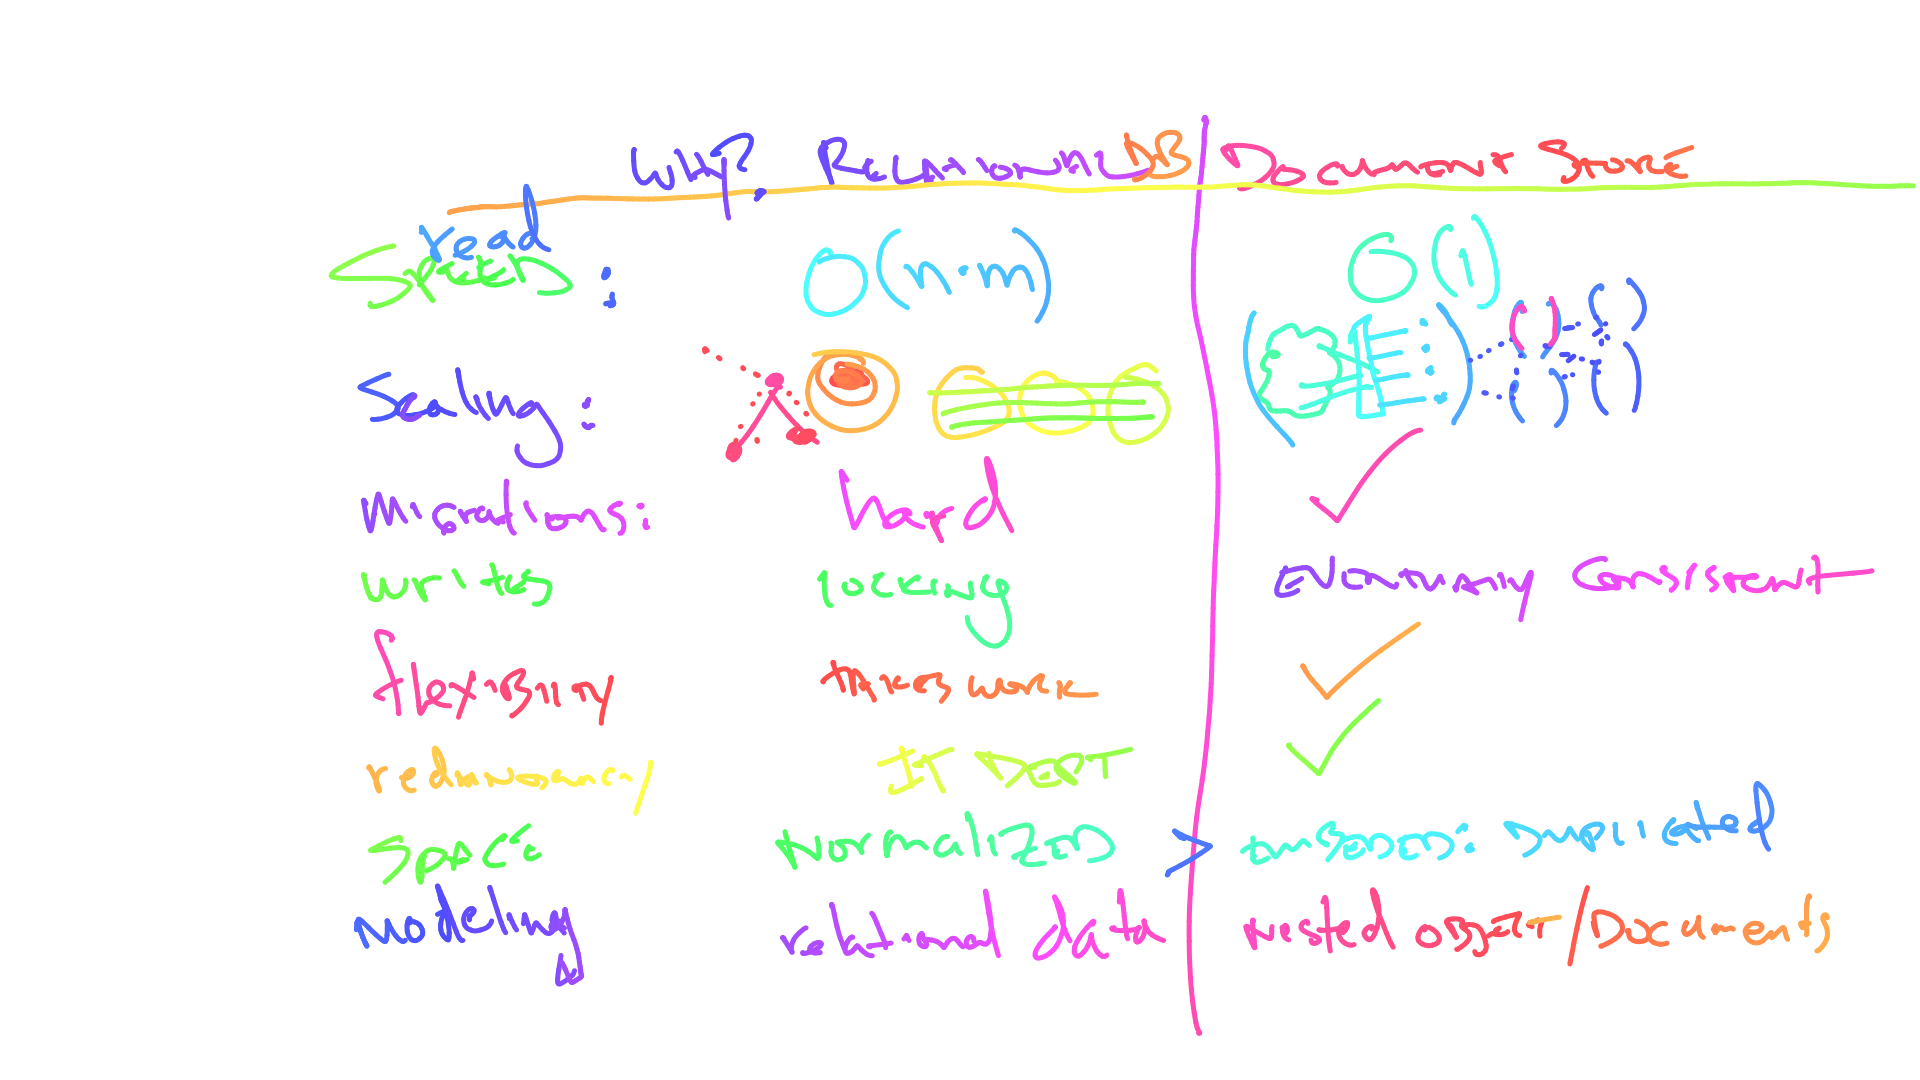 WHY? Relational DB Document Store
read
Speed : O(n·m) O(1)
Scaling :
Migrations: hard
writes locking Eventually Consistent
flexibility takes work
redundancy IT Dept
Space Normalized > embedded: Duplicated
Modeling relational data Nested object/Documents